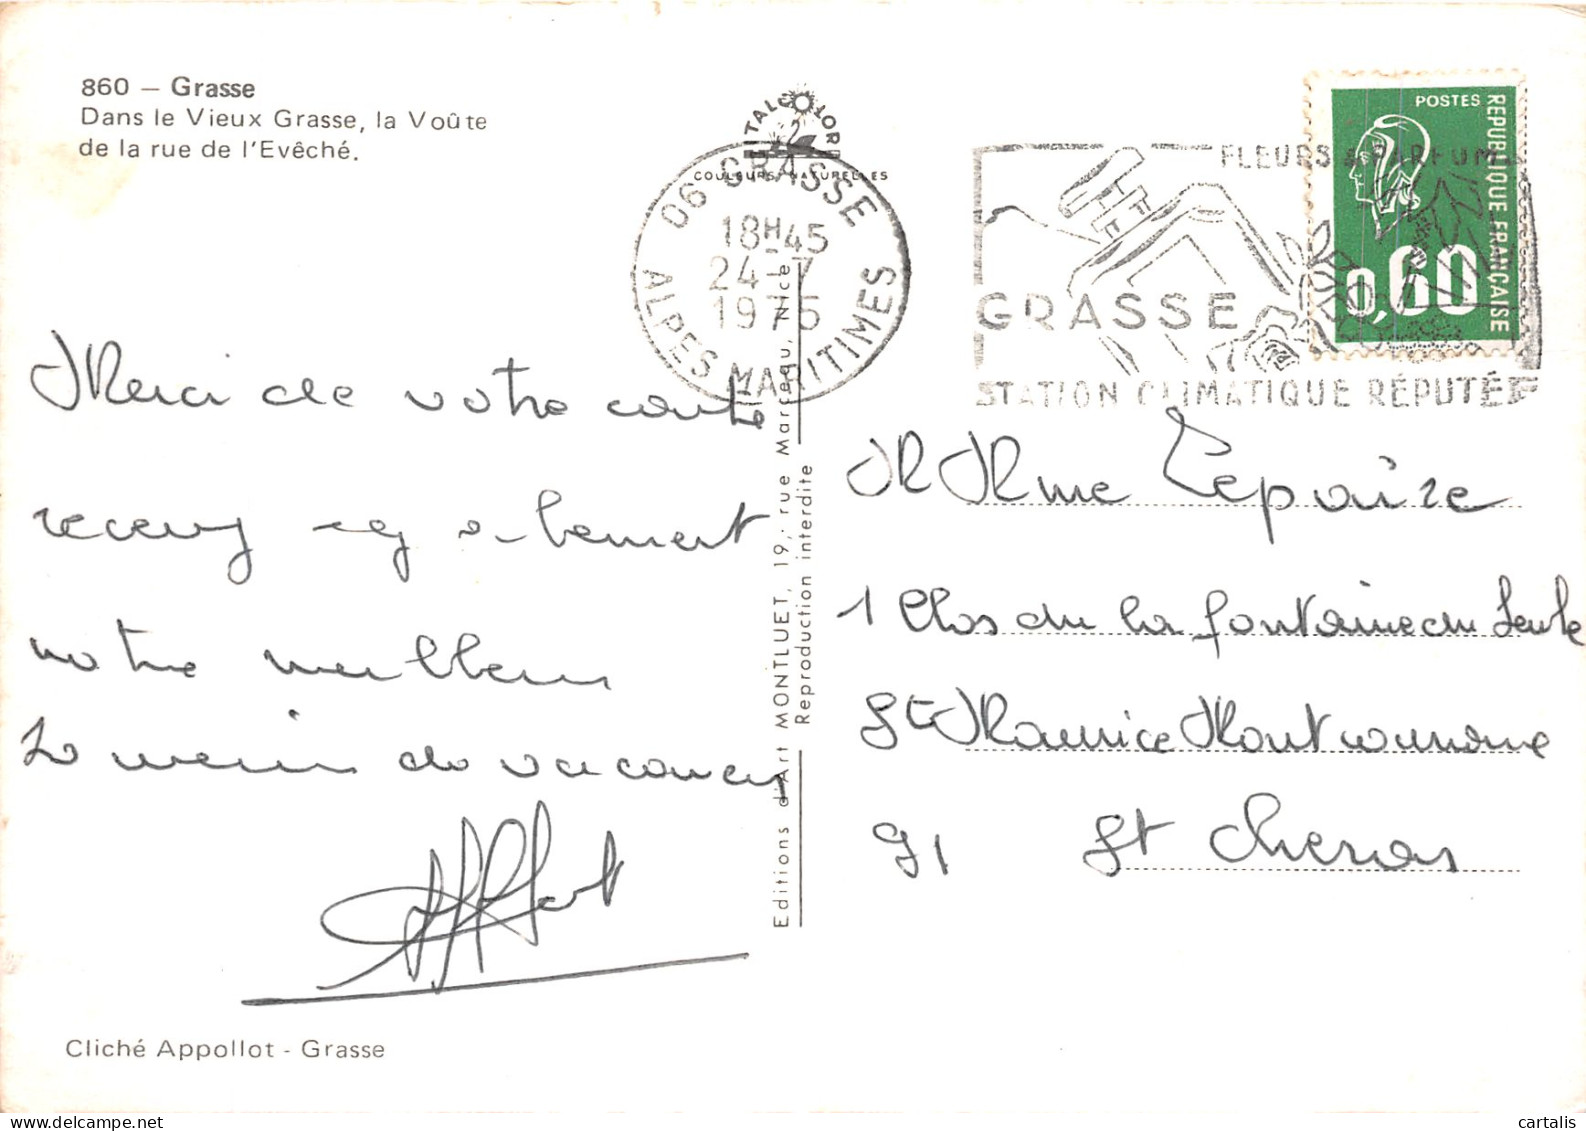 860 — Grasse
Dans le Vieux Grasse, la Voûte
de la rue de l'Evêché.
ITALCOLOR
COULEURS NATURELLES
06 GRASSE
18H45
24-7
1975
ALPES MARITIMES
FLEURS & PARFUMS
GRASSE
STATION CLIMATIQUE RÉPUTÉE
POSTES
REPUBLIQUE FRANÇAISE
0,60
Merci de votre carte
recevez également
notre meilleur
de vacances
Editions d'Art MONTLUET, 19, rue Marceau, Nice
Reproduction interdite
M Mme Lepaire
1 Clos de la fontaine du
St Maurice Montcouronne
91 St Cheron
Cliché Appollot - Grasse
cartalis